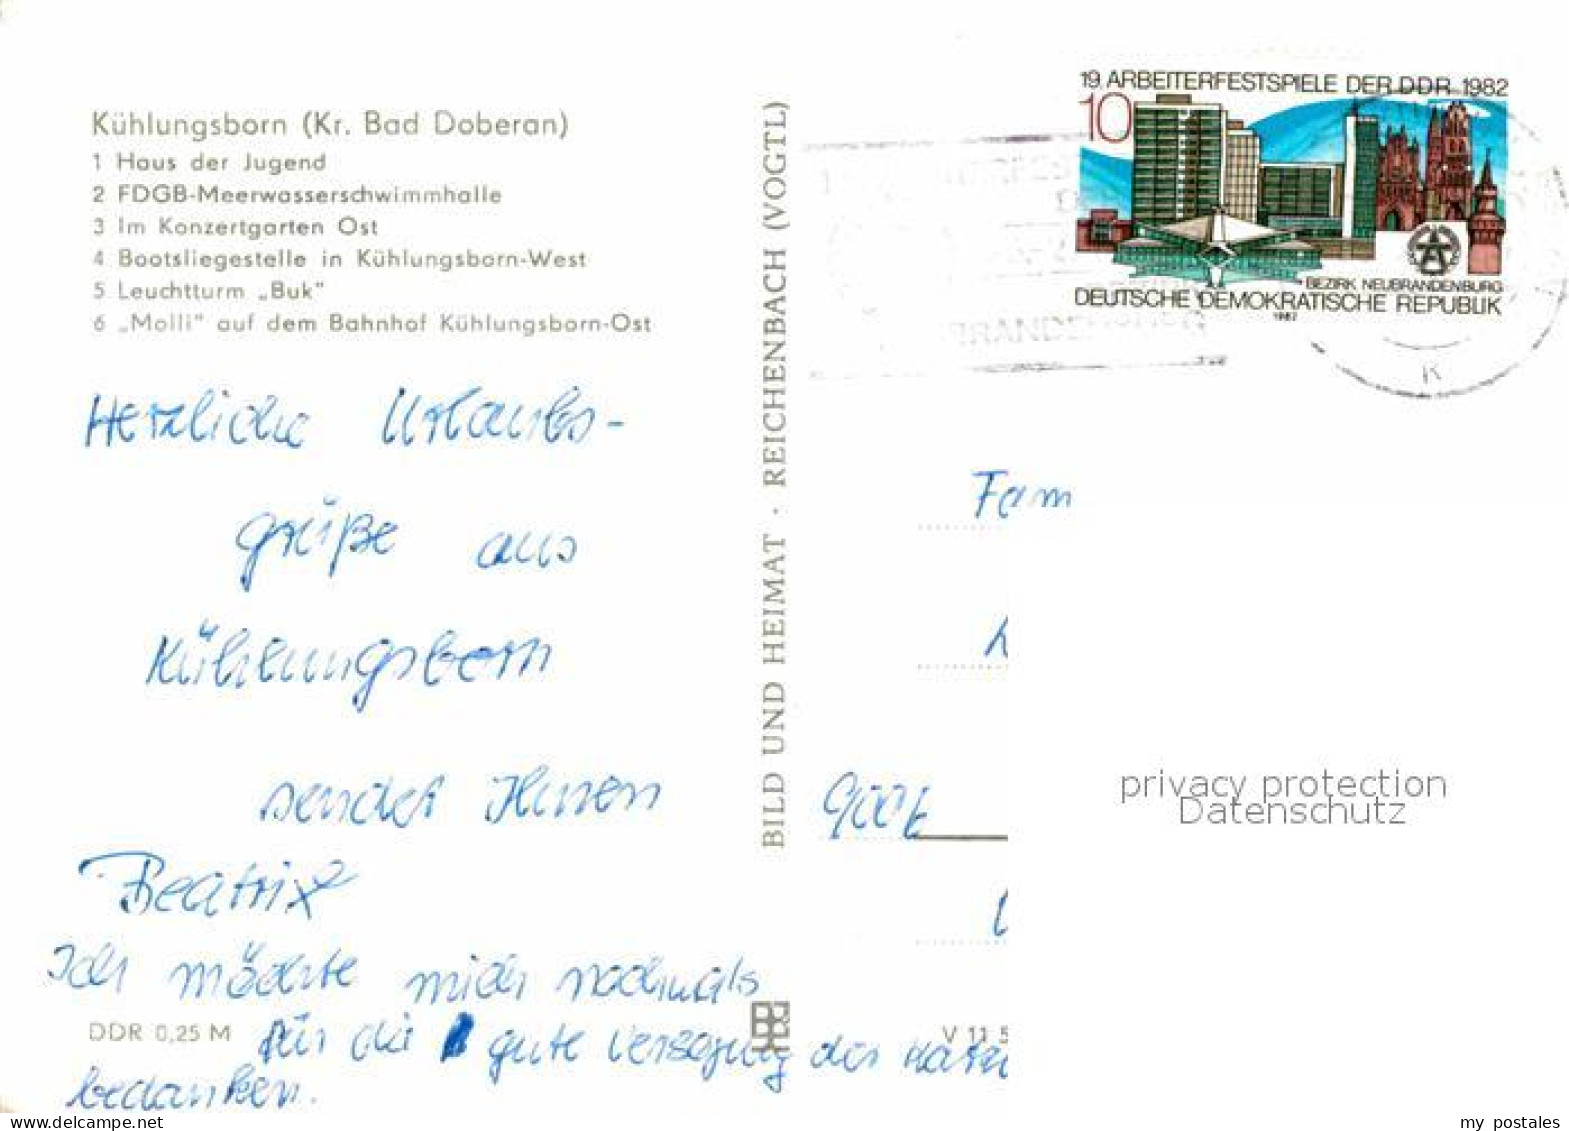 Kühlungsborn (Kr. Bad Doberan)
1 Haus der Jugend
2 FDGB-Meerwasserschwimmhalle
3 Im Konzertgarten Ost
4 Bootsliegestelle in Kühlungsborn-West
5 Leuchtturm „Buk"
6 „Molli" auf dem Bahnhof Kühlungsborn-Ost
Herzliche Urlaubs-
grüße aus
Kühlungsborn
sendet Ihnen
Beatrix
Ich möchte mich nochmals
für die gute Versorgung der
bedanken.
DDR 0,25 M
BILD UND HEIMAT · REICHENBACH (VOGTL)
V 11 5
19. ARBEITERFESTSPIELE DER DDR 1982
10
BEZIRK NEUBRANDENBURG
DEUTSCHE DEMOKRATISCHE REPUBLIK
1982
Fam
privacy protection
Datenschutz
www.delcampe.net
my_postales